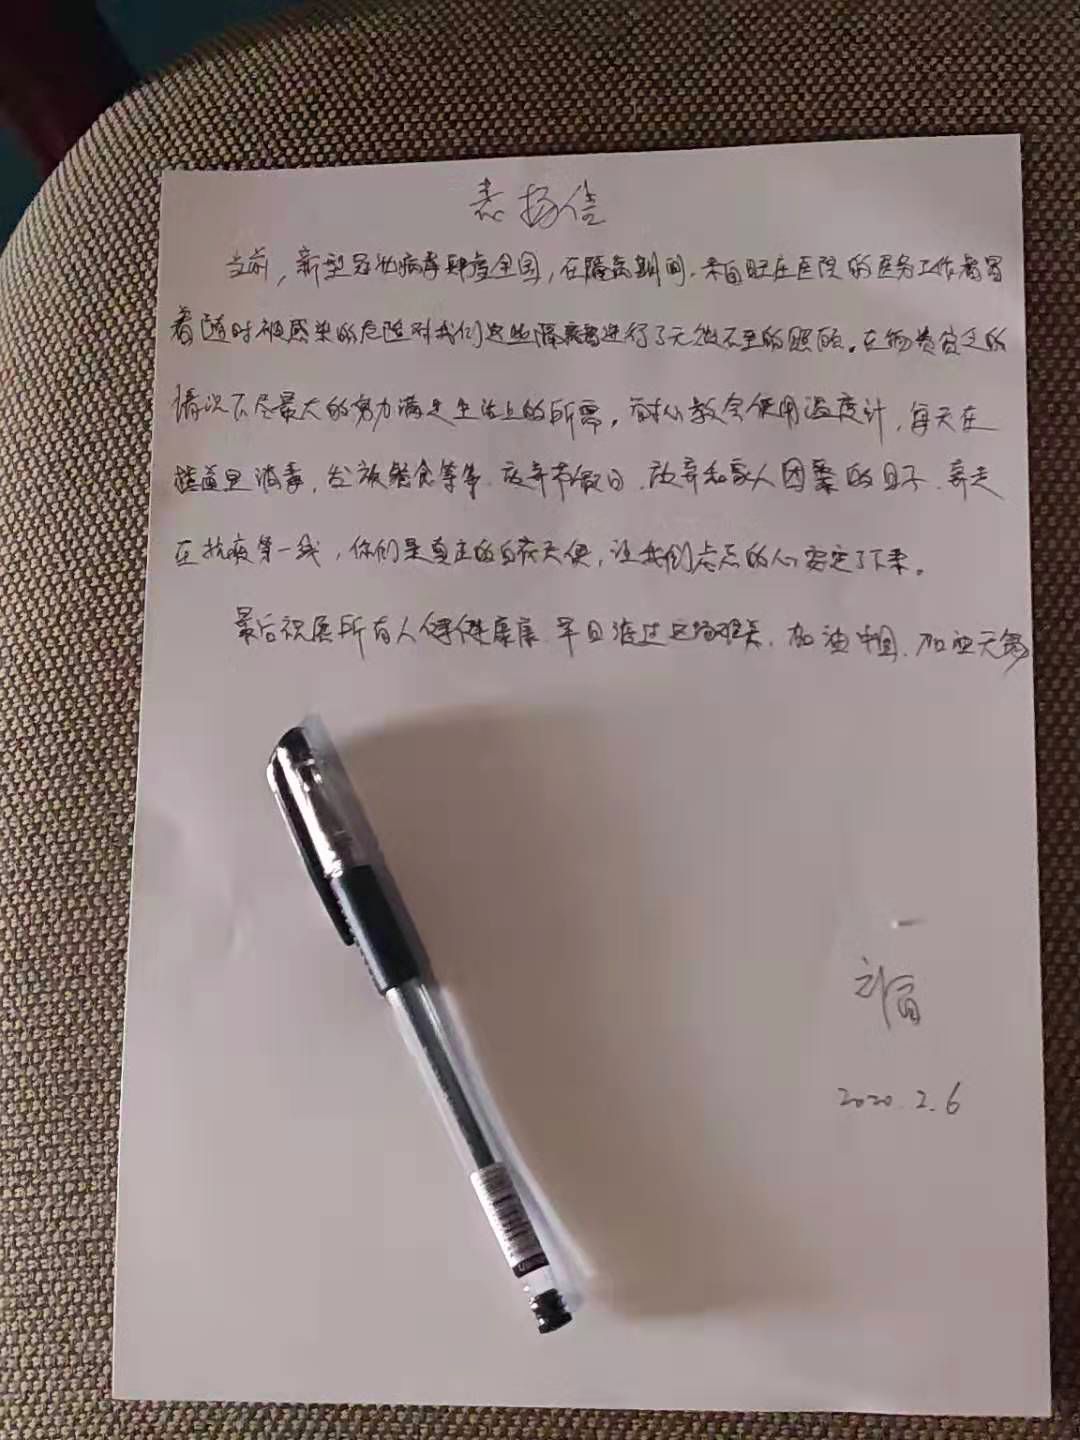 表扬信
当前，新型冠状病毒肆虐全国，在隔离期间，来自旺庄医院的医务工作者冒
着随时被感染的危险对我们这些隔离者进行了无微不至的照顾。在物资贫乏的
情况下尽最大的努力满足生活上的所需。耐心教会使用温度计，每天在
楼道里消毒，分放餐食等等，放弃节假日，放弃和家人团聚的日子，奔走
在抗疫第一线，你们是真正的白衣天使，让我们忐忑的心安定了下来。
最后祝愿所有人健健康康，早日渡过这场难关，加油中国，加油无锡
2020.2.6